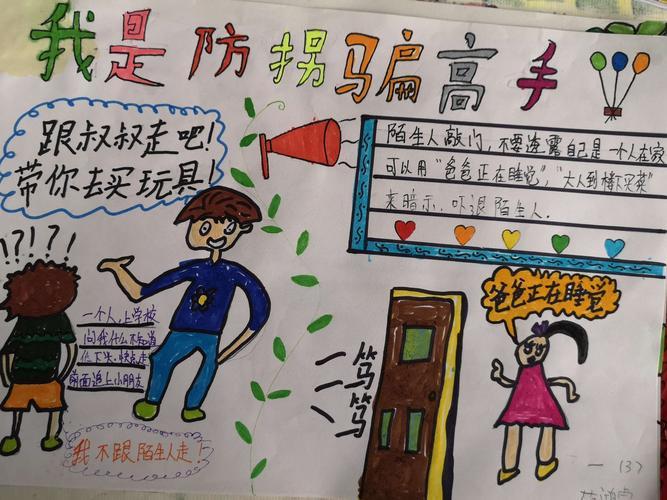 我是防拐骗高手
跟叔叔走吧!
带你去买玩具!
陌生人敲门,不要透露自己是一个人在家
可以用“爸爸正在睡觉”,“大人到楼下买菜”
来暗示、吓退陌生人.
!?!?!
一个人,上学校
问我什么不知道
低下头.快点走
前面追上小朋友
我不跟陌生人走!
爸爸正在睡觉
一(3)